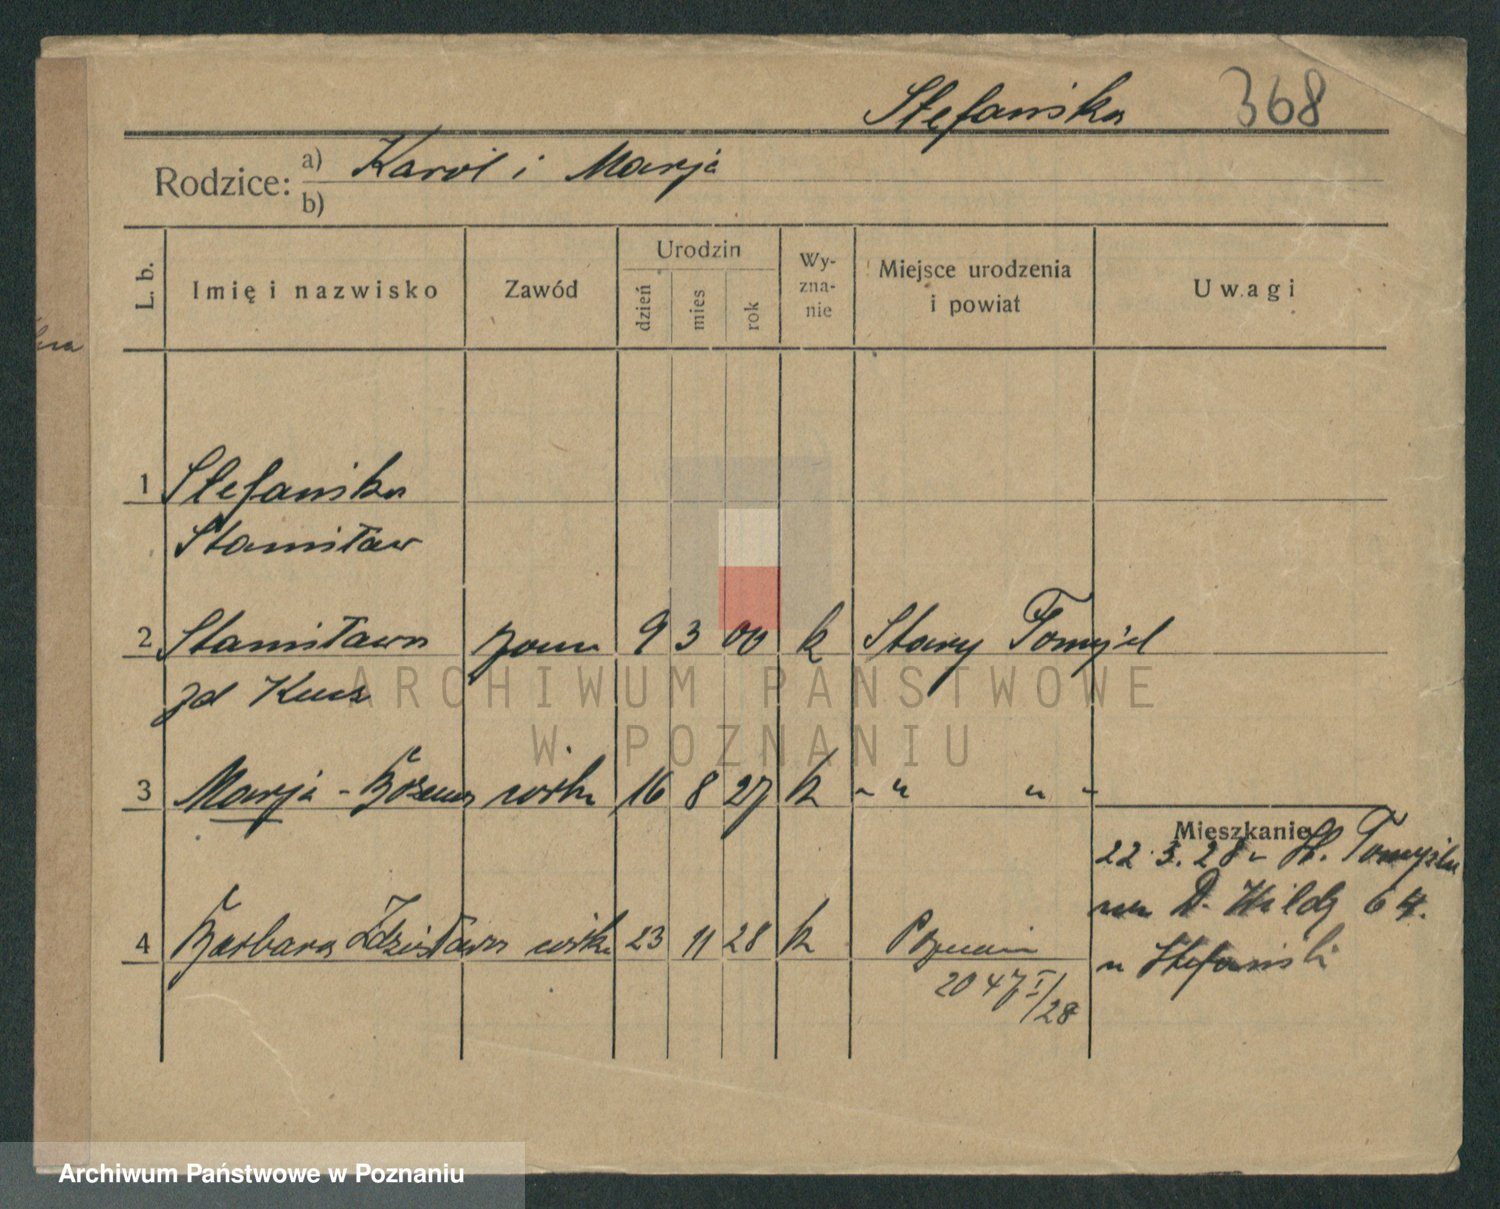 Stefańska 368
Rodzice: a) Karol i Marja
b)
L. b. Imię i nazwisko Zawód Urodzin Wy- Miejsce urodzenia Uwagi
dzień mies rok zna- i powiat
nie
1 Stefańska
Stanisław
2 Stanisława żona 9 3 00 k Stary Tomyśl
zd Kucz
3 Marja - Bożena córka 16 8 27 k " " " "
Mieszkanie
22.3.28 St. Tomyśla
D. Wilda 64.
4 Barbara Zdzisława córka 23 11 28 k Poznań
u Stefański
2047 I/28
ARCHIWUM PAŃSTWOWE
W POZNANIU
Archiwum Państwowe w Poznaniu